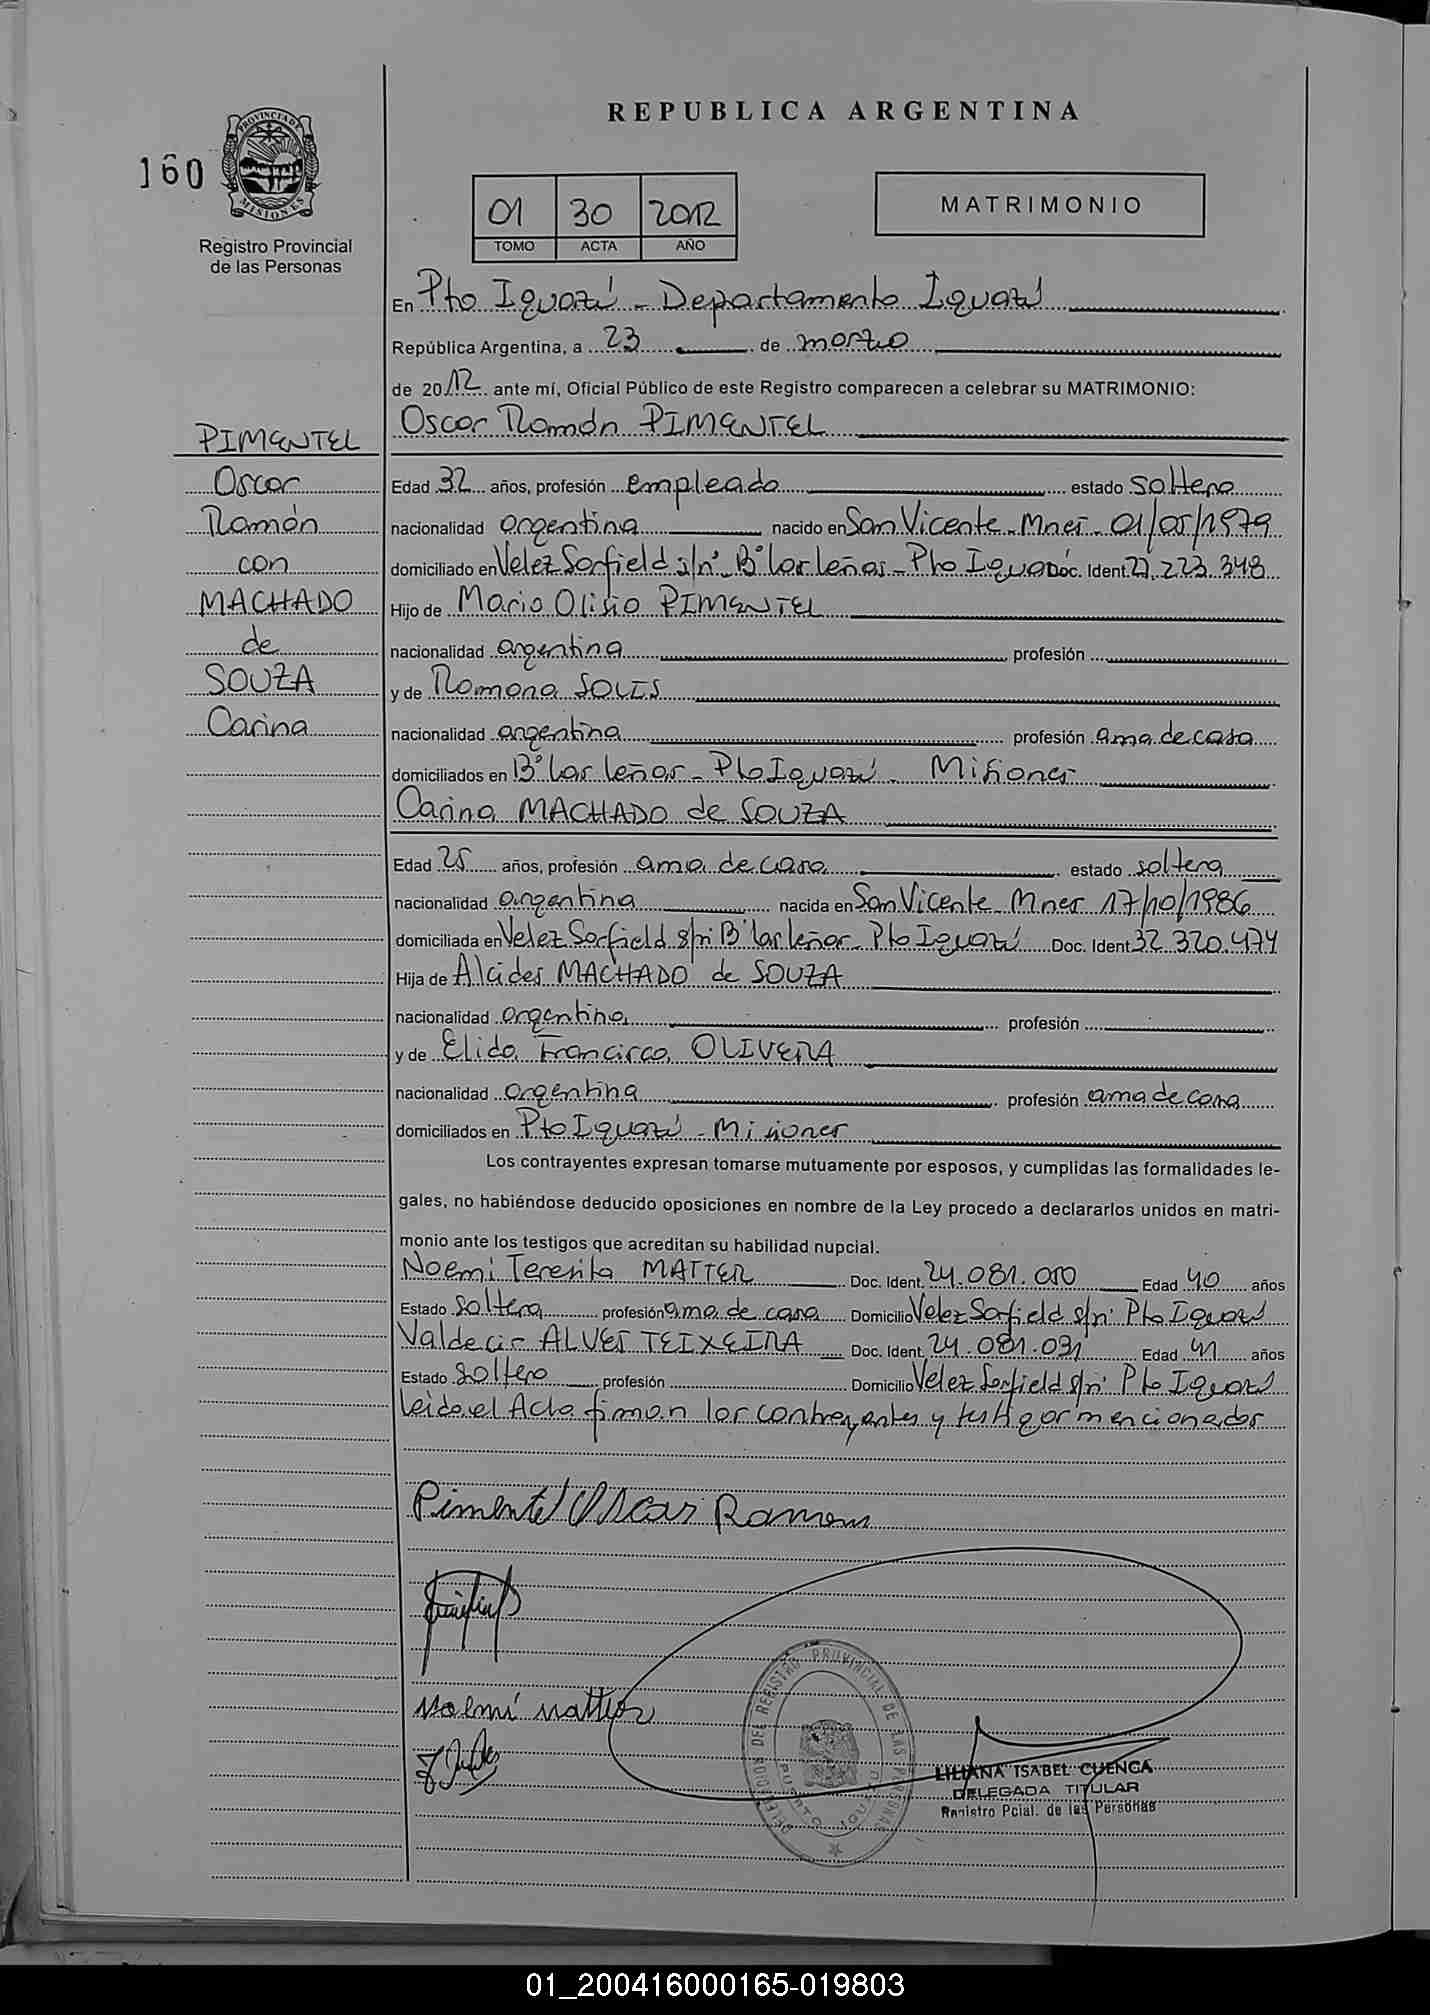 REPUBLICA ARGENTINA
160
PROVINCIA DE
MISIONES
Registro Provincial
de las Personas
01 30 2012
TOMO ACTA AÑO
MATRIMONIO
En Pto Iguazú - Departamento Iguazú
República Argentina, a 23 de marzo
de 2012 ante mí, Oficial Público de este Registro comparecen a celebrar su MATRIMONIO:
Oscar Ramón PIMENTEL
PIMENTEL
Oscar
Ramón
con
MACHADO
de
SOUZA
Carina
Edad 32 años, profesión empleado estado soltero
nacionalidad argentina nacido en San Vicente - Mnes - 01/05/1979
domiciliado en Velez Sarfield s/nº Bº las leñas - Pto Iguazú Doc. Ident. 27.223.348
Hijo de Mario Olisio PIMENTEL
nacionalidad argentina profesión
y de Ramona SOLIS
nacionalidad argentina profesión ama de casa
domiciliados en Bº las leñas - Pto Iguazú - Misiones
Carina MACHADO de SOUZA
Edad 25 años, profesión ama de casa estado soltera
nacionalidad argentina nacida en San Vicente - Mnes 17/10/1986
domiciliada en Velez Sarfield s/nº Bº las leñas - Pto Iguazú Doc. Ident. 32.320.474
Hija de Alcides MACHADO de SOUZA
nacionalidad argentina profesión
y de Elida Francisca OLIVERA
nacionalidad argentina profesión ama de casa
domiciliados en Pto Iguazú - Misiones
Los contrayentes expresan tomarse mutuamente por esposos, y cumplidas las formalidades le-
gales, no habiéndose deducido oposiciones en nombre de la Ley procedo a declararlos unidos en matri-
monio ante los testigos que acreditan su habilidad nupcial.
Noemi Teresita MATTER Doc. Ident. 24.081.010 Edad 40 años
Estado soltera profesión ama de casa Domicilio Velez Sarfield s/nº Pto Iguazú
Valdecir ALVES TEIXEIRA Doc. Ident. 24.081.031 Edad 41 años
Estado soltero profesión Domicilio Velez Sarfield s/nº Pto Iguazú
Leida el Acta firman los contrayentes y testigos mencionados
Pimentel Oscar Ramon
Noemí Matter
DELEGACION DEL REGISTRO PROVINCIAL DE LAS PERSONAS
PUERTO IGUAZU
LILIANA ISABEL CUENCA
DELEGADA TITULAR
Registro Pcial. de las Personas
01_200416000165-019803